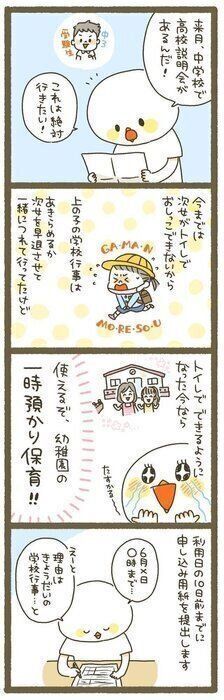 来月、中学校で
高校説明会が
あるんだ!
中3
受験生
これは絶対
行きたい!
今までは
次女がトイレで
おしっこできないから
上の子の学校行事は
あきらめるか
次女を早退させて
一緒につれて行ってたけど
GA・MA・N
MO・RE・SO・U
トイレでできるように
なった今なら
使えるぞ、幼稚園の
一時預かり保育!!
たすかる。
利用日の〇日前までに
申し込み用紙を提出します
6月×日
〇時まで…
えーと
理由は
きょうだいの
学校行事…と